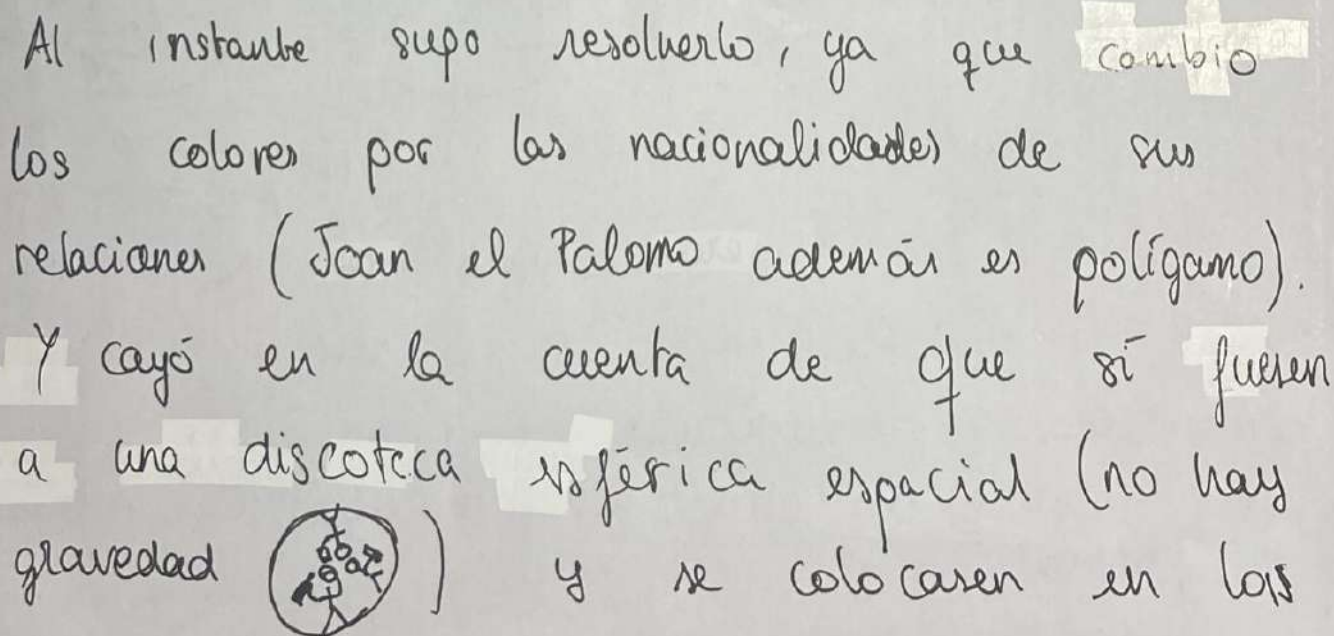 Al instante supo resolverlo, ya que cambio
los colores por las nacionalidades de sus
relaciones (Joan el Palomo además es polígamo).
Y cayó en la cuenta de que si fuesen
a una discoteca esférica espacial (no hay
gravedad ) y se colocasen en los